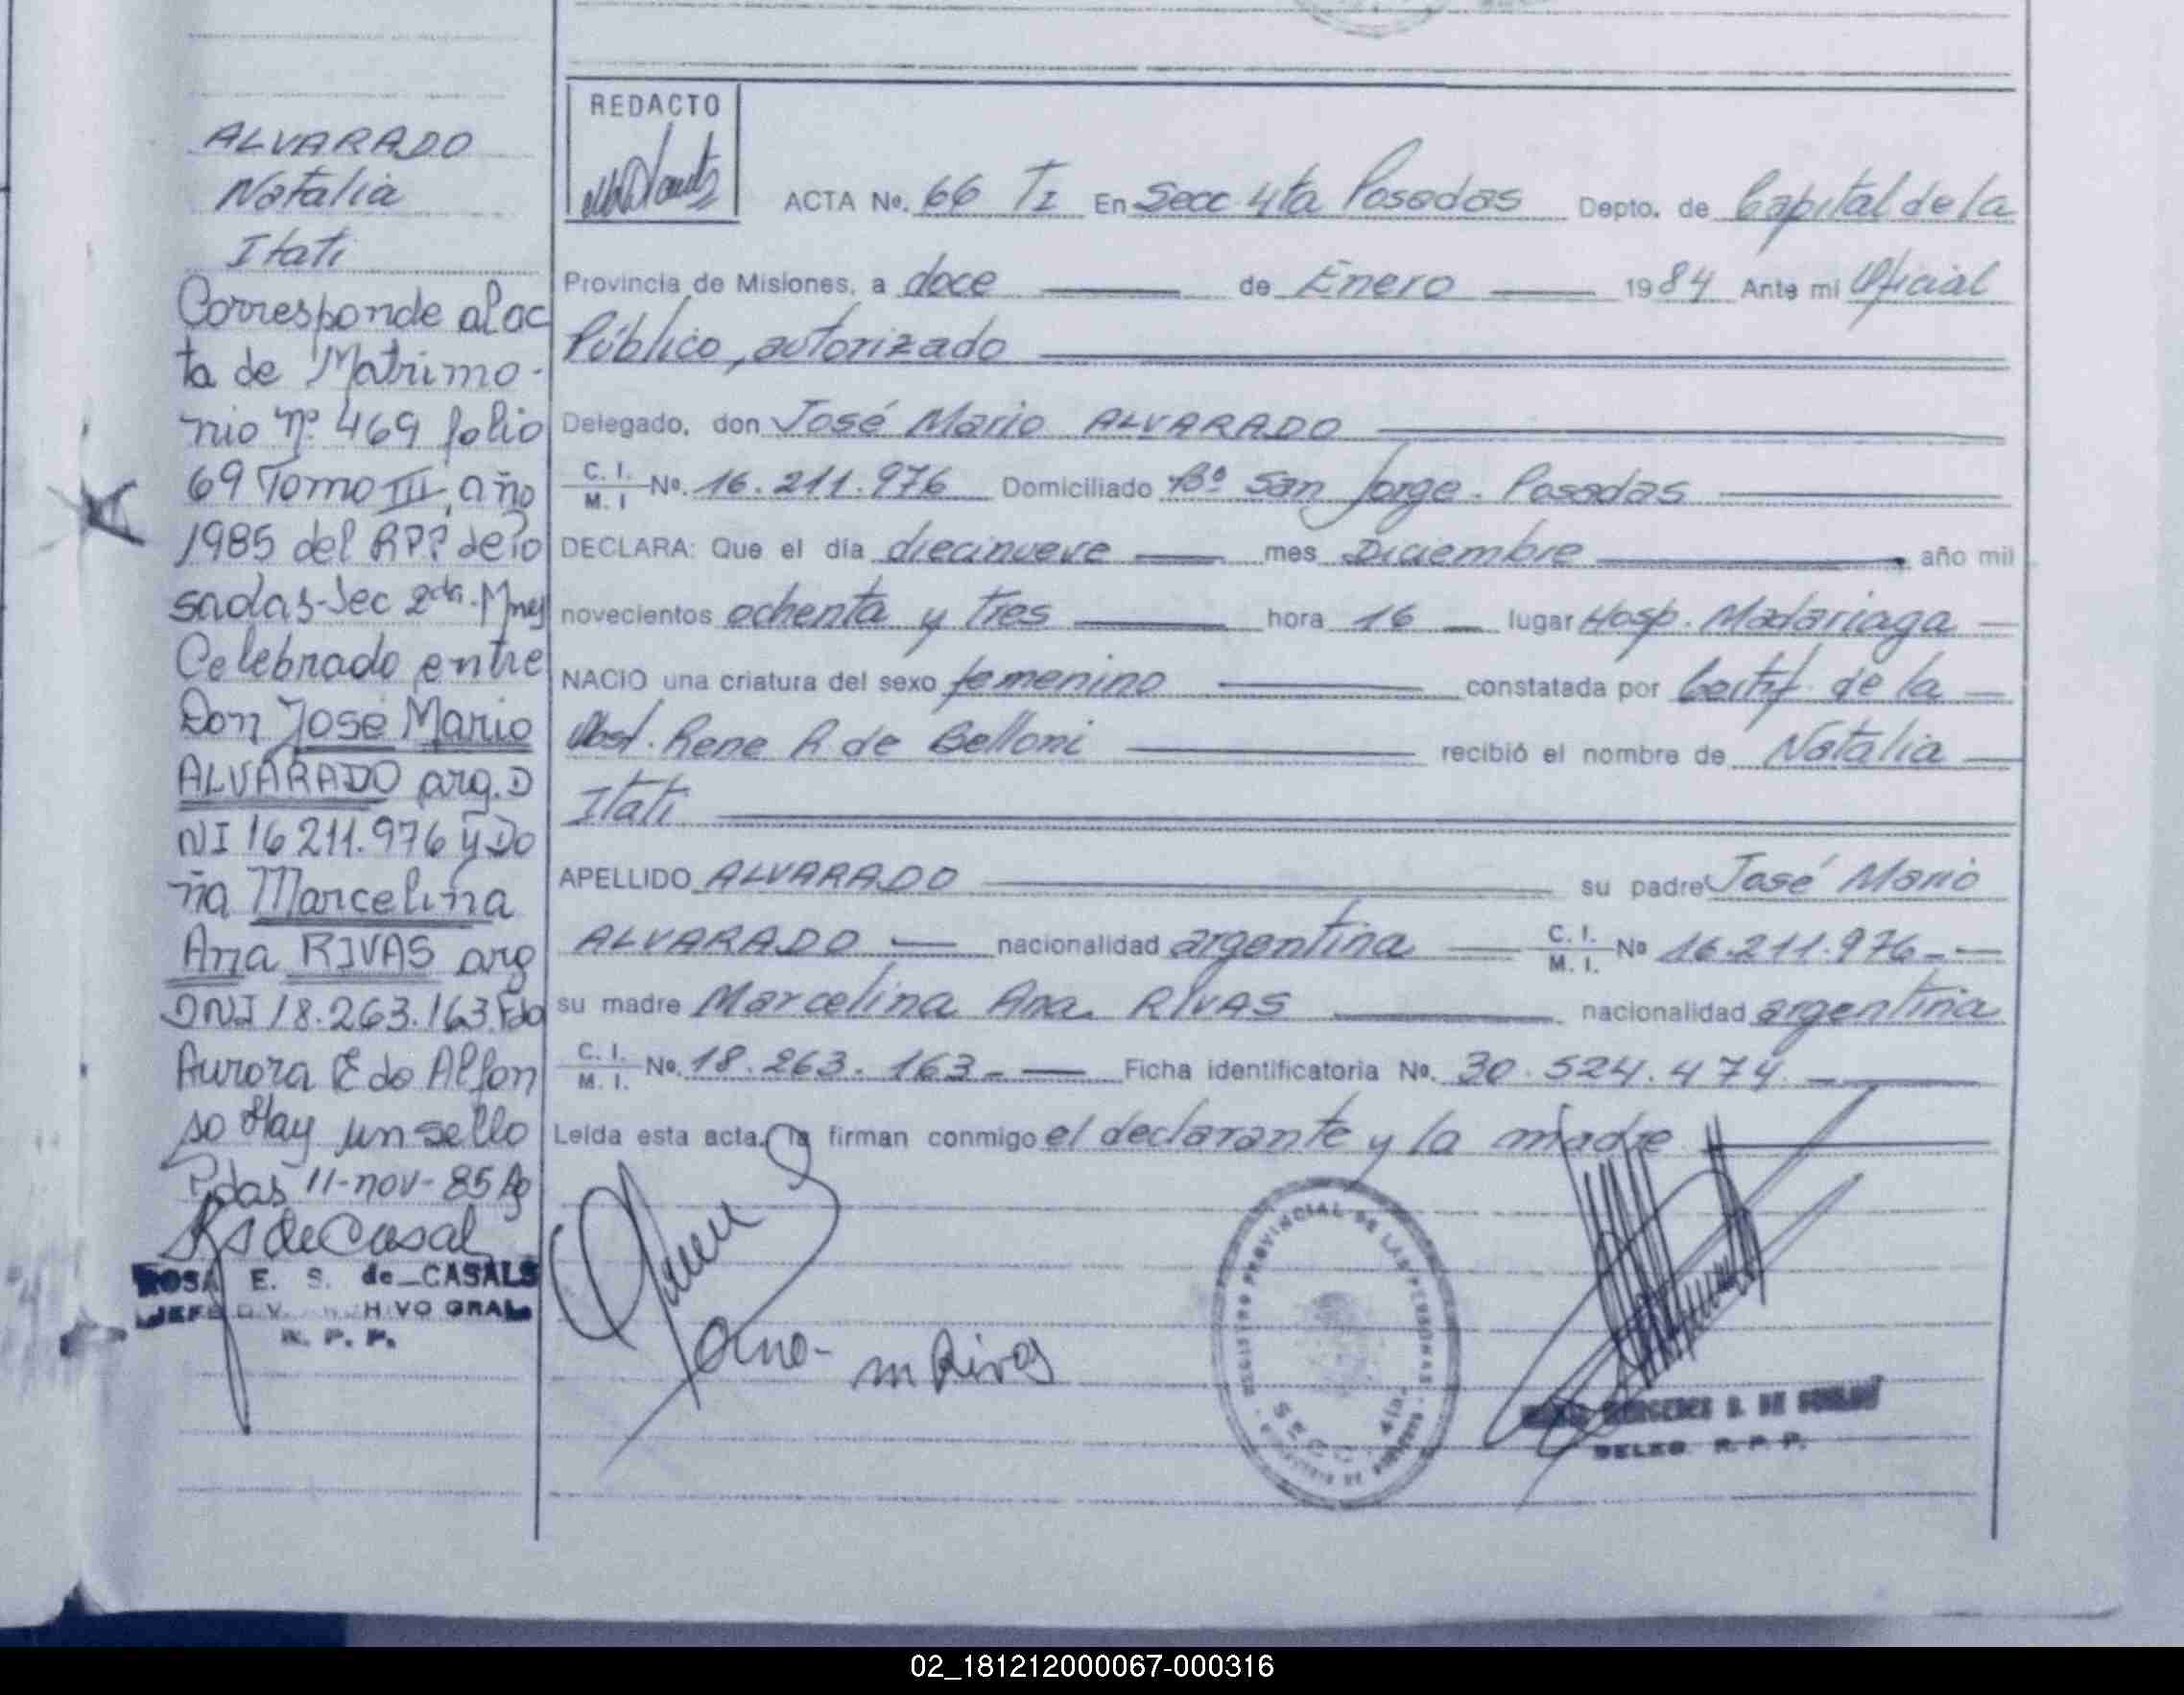 ALVARADO
Natalia
Itati
Corresponde al ac
ta de Matrimo-
nio nº 469 folio
69 Tomo III, año
1985 del RPP de Po
sadas-Sec 2da. Mnes
Celebrado entre
Don José Mario
ALVARADO arg. D
NI 16 211.976 y Do
ña Marcelina
Ana RIVAS arg
DNI 18.263.163. Fdo
Aurora E de Alfon
so Hay un sello
Pdas 11-nov-85
RS de Casal
ROSA E. S. de CASALS
JEFE DIV. ARCHIVO GRAL
R. P. P.
REDACTO
ACTA Nº. 66 TI En Secc 4ta Posadas Depto. de Capital de la
Provincia de Misiones, a doce de Enero 1984 Ante mi Oficial
Público, autorizado
Delegado, don José Mario ALVARADO
C. I. M. I Nº. 16.211.976 Domiciliado Bº San Jorge. Posadas
DECLARA: Que el día diecinueve mes Diciembre año mil
novecientos ochenta y tres hora 16 lugar Hosp. Madariaga
NACIO una criatura del sexo femenino constatada por Certif. de la
Obst. Rene R. de Belloni recibió el nombre de Natalia
Itati
APELLIDO ALVARADO su padre José Mario
ALVARADO nacionalidad argentina C. I. M. I. Nº 16.211.976
su madre Marcelina Ana RIVAS nacionalidad argentina
C. I. M. I. Nº. 18.263.163 Ficha identificatoria Nº. 30.524.474
Leída esta acta, la firman conmigo el declarante y la madre
Ana- m Rivas
REGISTRO PROVINCIAL DE LAS PERSONAS
SECC. 4ta.
MERCEDES
DELEG. R. P. P.
02_181212000067-000316